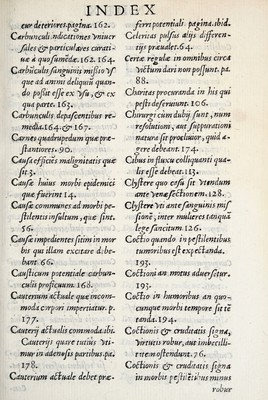 INDEX
cur deteriores.pagina. 162.
Carbunculi indicationes vniuer
sales & particulares curati-
uæ a quo sumédæ. 162. 164.
Carbuculis sanguinis missio vs
que ad animi deliquiũ quan-
do possit esse ex vsu, & ex
qua parte. 163.
Carbunculis depascentibus re-
media. 164. & 167.
Carnes quadrupedum quæ præ-
stantiores. 90.
Causa efficiẽs malignitatis quæ
sit. 3.
Causæ huius morbi epidemici
quæ fuerint. 14.
Causæ communes ad morbi pe-
stilentis insultum, quæ sint.
56.
Causæ impedientes sitim in mor
bis qui illam excitare d. be-
bant. 66.
Causticum potentiale carbun-
culis proficuum. 168.
Cauterium actuale quæ incom-
moda corpori imperiatur. p.
177.
Cauterij actualis commoda. ibi.
Cauterijs quare tutius vti-
mur in adenosis partibus. pa.
178.
Cauterium actuale debet præ-
ferri potentiali. pagina. ibid.
Celeritas pulsus alijs differen-
tijs præualet. 64.
Certæ regulæ in omnibus circa
victum dari non possunt. pa.
88.
Charitas procuranda in his qui
peste deseruiunt. 106.
Chirurgi cum dubij sunt, num
resolutioni, aut suppurationi
natura sit procliuior, quid a-
gere debeant. 174.
Cibus in fluxu colliquanti qua-
lis esse debeat. 113.
Clystere quo cesu sit vtendum
ante venæ sectionem. 128.
Clystere vti ante sanguinis mis
sionẽ, inter mulieres tanquã
lege sancitum. 126.
Coctio quando in pestilentibus
tumoribus est expectanda.
193.
Coctioni an motus aduersetur.
193.
Coctio in humoribus an quo-
cunque morbi tempore sit tẽ
tanda. 194.
Coctionis & cruditatis signa,
virtutis robur, aut imbecilli-
tatem ostendunt. 76.
Coctionis & cruditatis signa
in morbis pestilẽtibus minus
robur